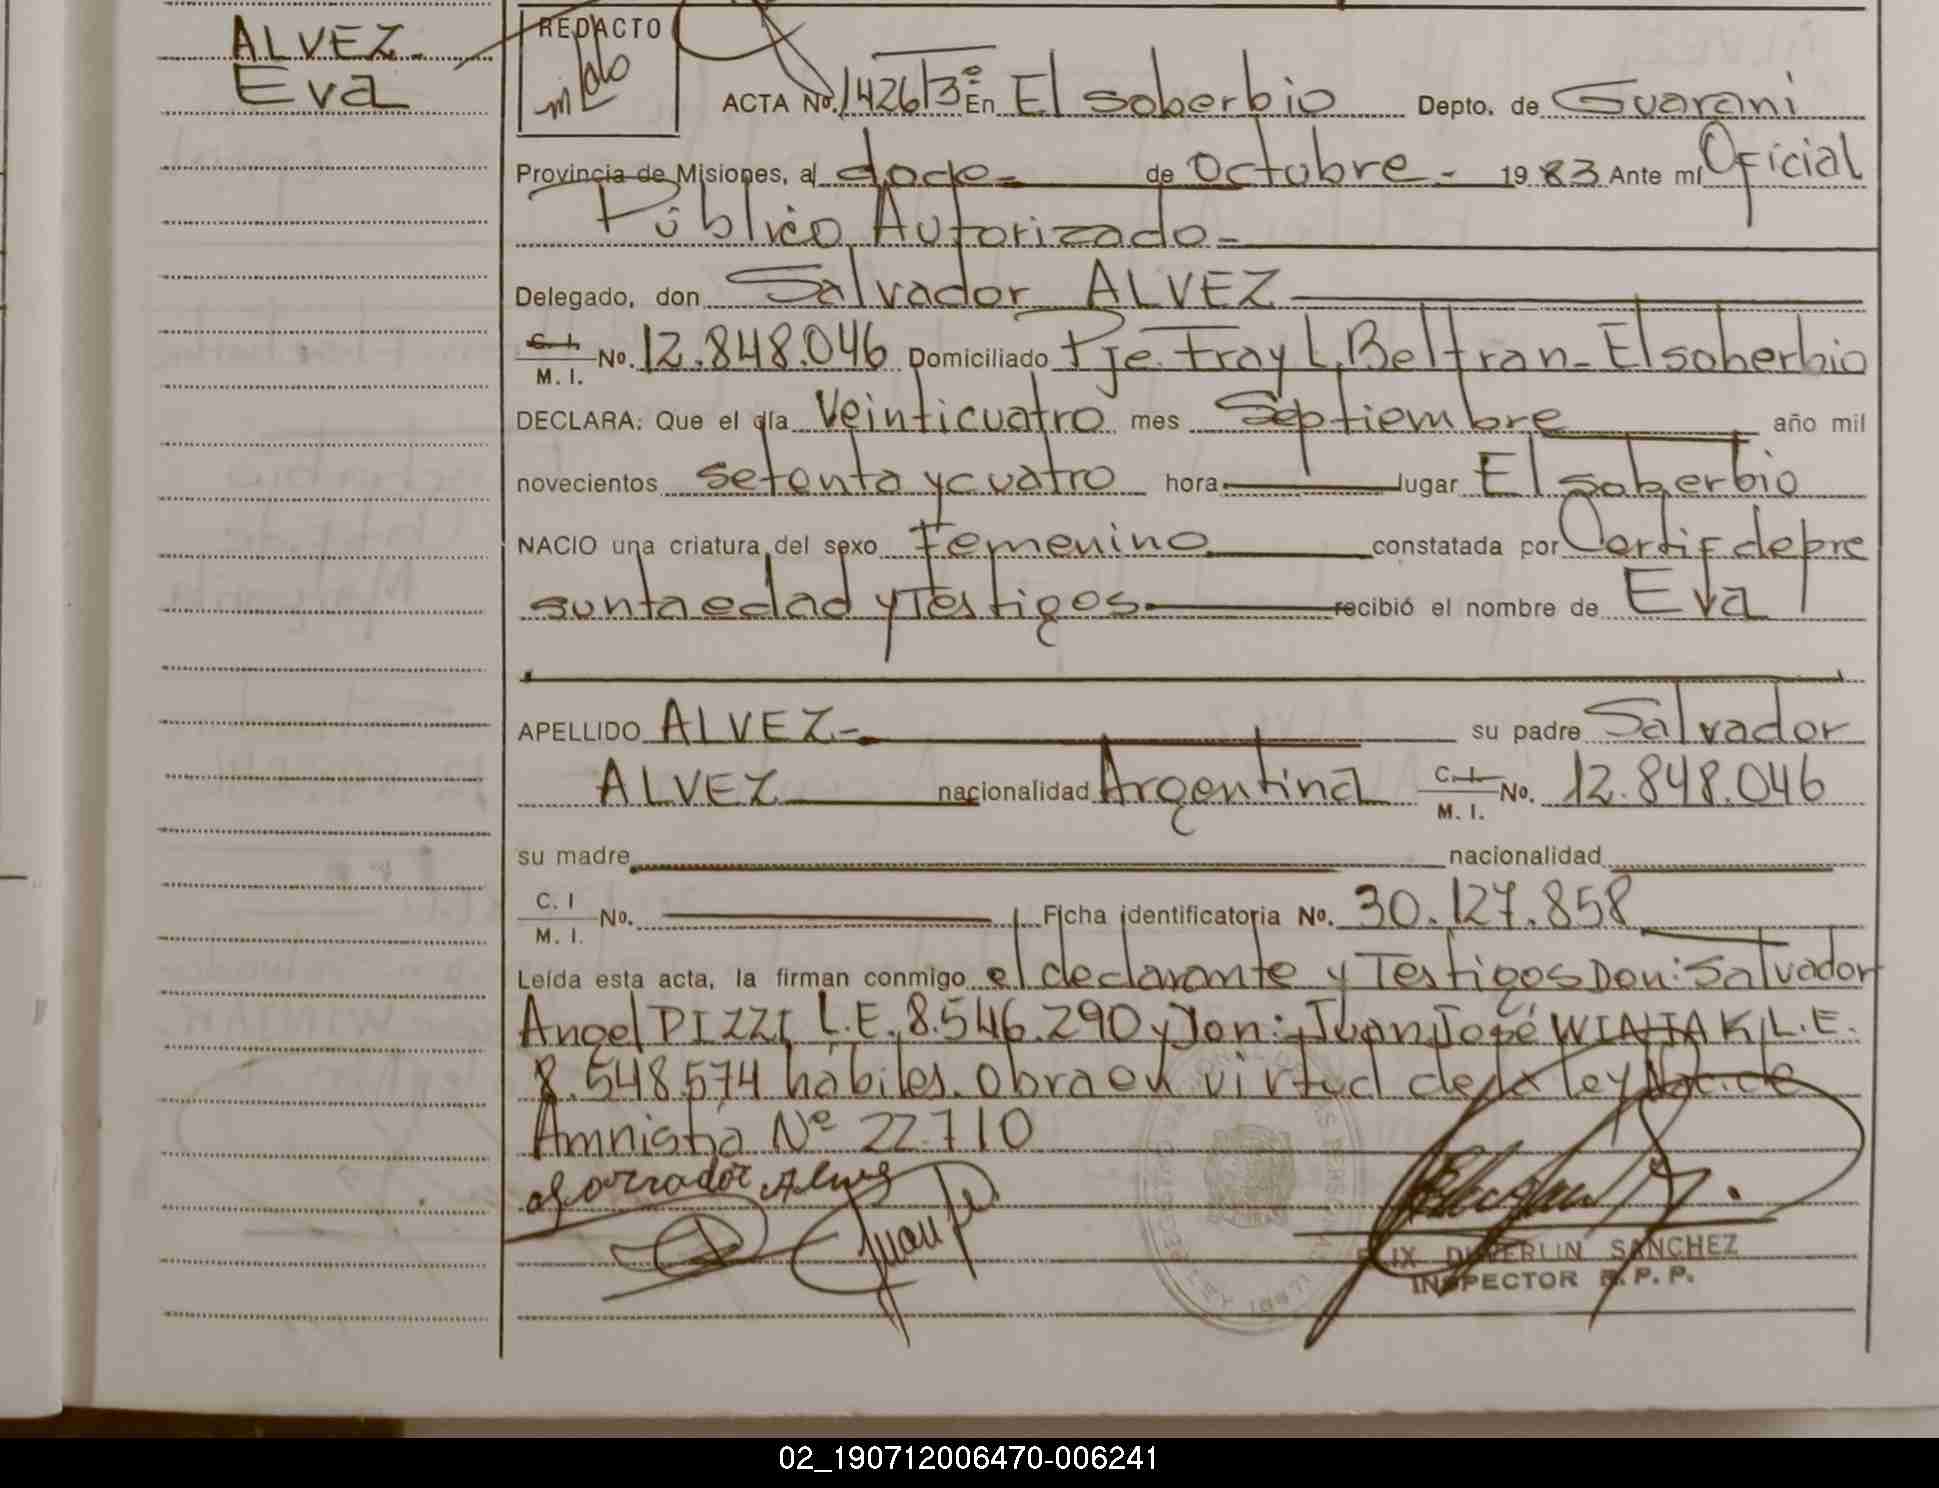 ALVEZ-
Eva
REDACTO
ACTA No. 1426/3º En El soberbio Depto. de Guarani
Provincia de Misiones, al doce- de Octubre- 1983 Ante mí Oficial
Público Autorizado-
Delegado, don Salvador ALVEZ
C. I. / M. I. No. 12.848.046 Domiciliado Pje. Fray L. Beltran- El soberbio
DECLARA: Que el día Veinticuatro mes Septiembre año mil
novecientos setenta y cuatro hora lugar El soberbio
NACIO una criatura del sexo Femenino constatada por Certif de pre
sunta edad y Testigos- recibió el nombre de Eva
APELLIDO ALVEZ- su padre Salvador
ALVEZ nacionalidad Argentina C. I. / M. I. No. 12.848.046
su madre nacionalidad
C. I / M. I. No. Ficha identificatoria No. 30.127.858
Leída esta acta, la firman conmigo el declarante y Testigos Don: Salvador
Angel PIZZI L.E. 8.546.290 y Don: Juan José WINIAK L.E.
8.548.574 hábiles. Obra en virtud de la ley Nac. de
Amnistia Nº 22.710
DUVERLIN SANCHEZ
INSPECTOR R. P. P.
02_190712006470-006241